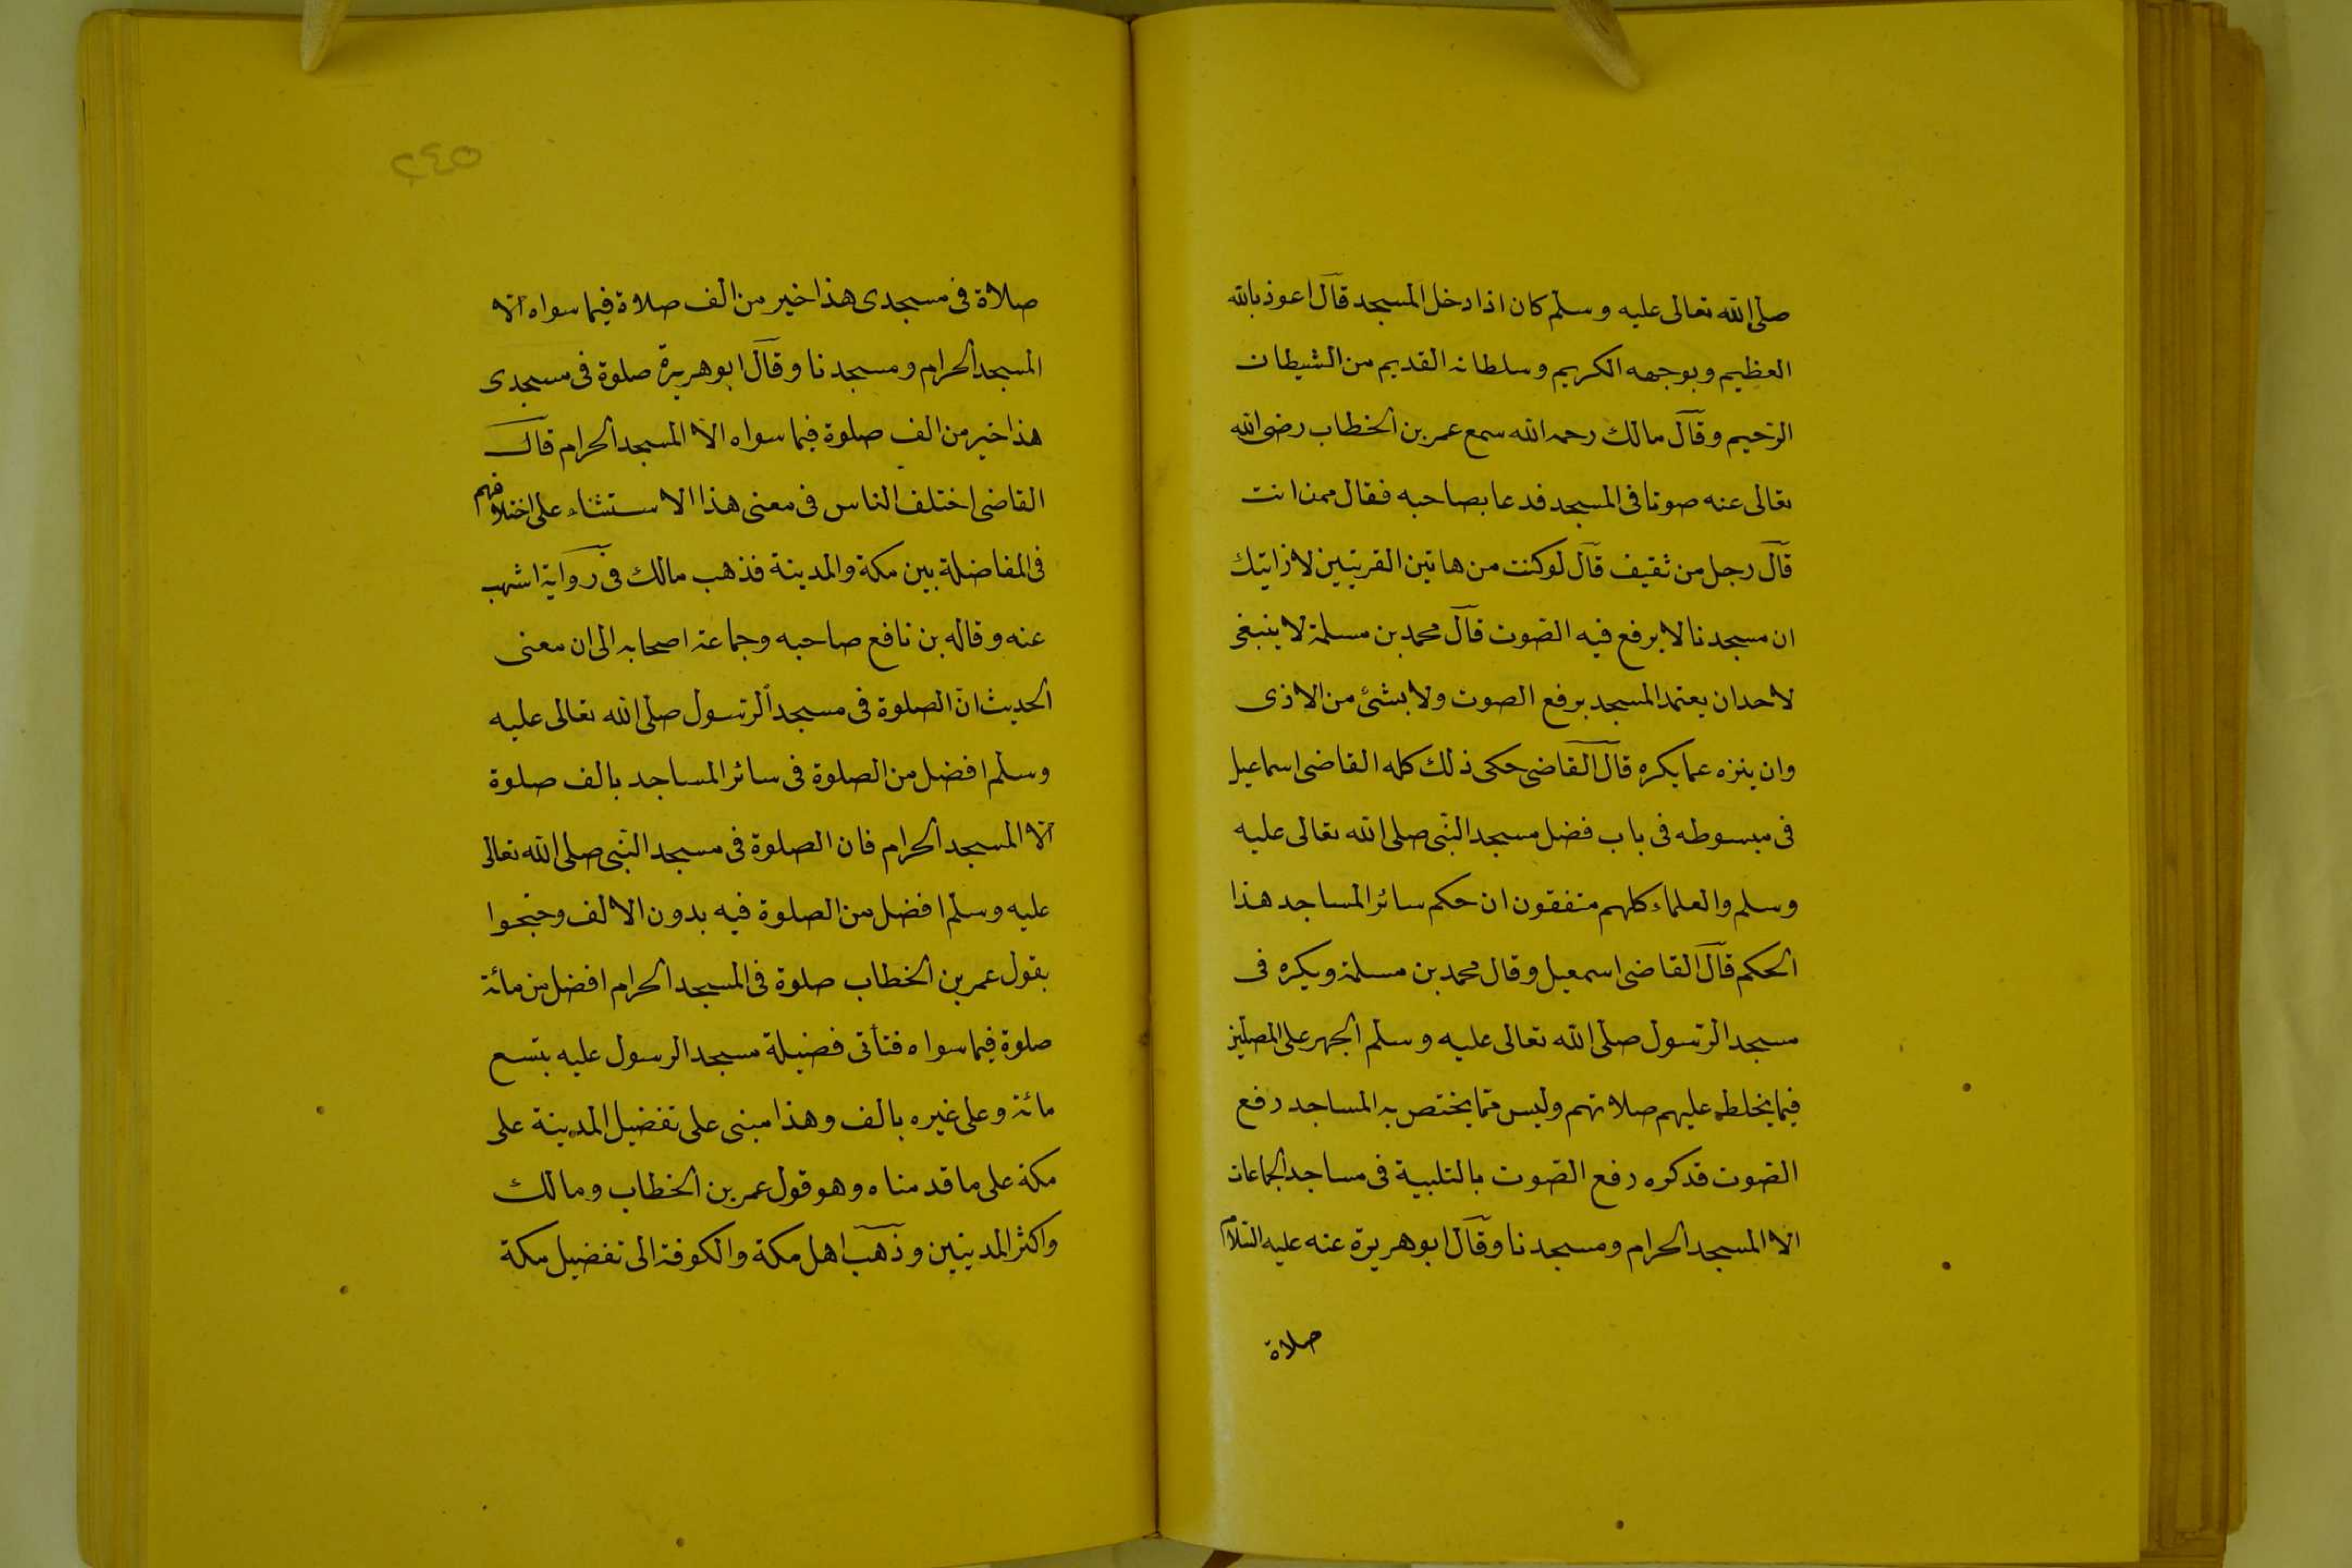 صلى الله تعالى عليه وسلم كان اذا دخل المسجد قال اعوذ بالله
العظيم وبوجهه الكريم وسلطانه القديم من الشيطان
الرجيم وقال مالك رحمه الله سمع عمر بن الخطاب رضى الله
تعالى عنه صوتا فى المسجد فدعا بصاحبه فقال ممن انت
قال رجل من ثقيف قال لو كنت من هاتين القريتين
ان مسجدنا لا يرفع فيه الصوت قال محمد بن مسلمة لا ينبغى
لاحد ان يعتمد المسجد برفع الصوت ولا بشئ من الاذى
وان ينزه عما يكره قال القاضى حكى ذلك كله القاضى اسماعيل
فى مبسوطه فى باب فضل مسجد النبى صلى الله تعالى عليه
وسلم والعلماء كلهم متفقون ان حكم سائر المساجد هذا
الحكم قال القاضى اسمعيل وقال محمد بن مسلمة ويكره فى
مسجد الرسول صلى الله تعالى عليه وسلم الجهر على المصلين
فيما يخلط عليهم صلاتهم وليس مما يختص به المساجد رفع
الصوت قد كره رفع الصوت بالتلبية فى مساجد الجماعات
الا المسجد الحرام ومسجدنا وقال ابو هريرة عنه عليه السلام
صلاة
٥٤٢
صلاة فى مسجدى هذا خير من الف صلاة فيما سواه الا
المسجد الحرام ومسجدنا وقال ابو هريرة صلوة فى مسجدى
هذا خير من الف صلوة فيما سواه الا المسجد الحرام قال
القاضى اختلف الناس فى معنى هذا الاستثناء على اختلافهم
فى المفاضلة بين مكة والمدينة فذهب مالك فى رواية اشهب
عنه وقاله بن نافع صاحبه وجماعة اصحابه الى ان معنى
الحديث ان الصلوة فى مسجد الرسول صلى الله تعالى عليه
وسلم افضل من الصلوة فى سائر المساجد بالف صلوة
الا المسجد الحرام فان الصلوة فى مسجد النبى صلى الله تعالى
عليه وسلم افضل من الصلوة فيه بدون الالف وحتجوا
بقول عمر بن الخطاب صلوة فى المسجد الحرام افضل من مائة
صلوة فيما سواه فتأتى فضيلة مسجد الرسول عليه بتسع
مائة وعلى غيره بالف وهذا مبنى على تفضيل المدينة على
مكة على ما قدمناه وهو قول عمر بن الخطاب ومالك
واكثر المدينين وذهب اهل مكة والكوفة الى تفضيل مكة